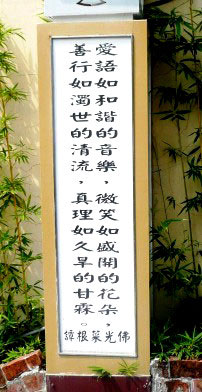 愛語如和諧的音樂，微笑如盛開的花朵，
善行如濁世的清流，真理如久旱的甘霖。
佛光菜根譚